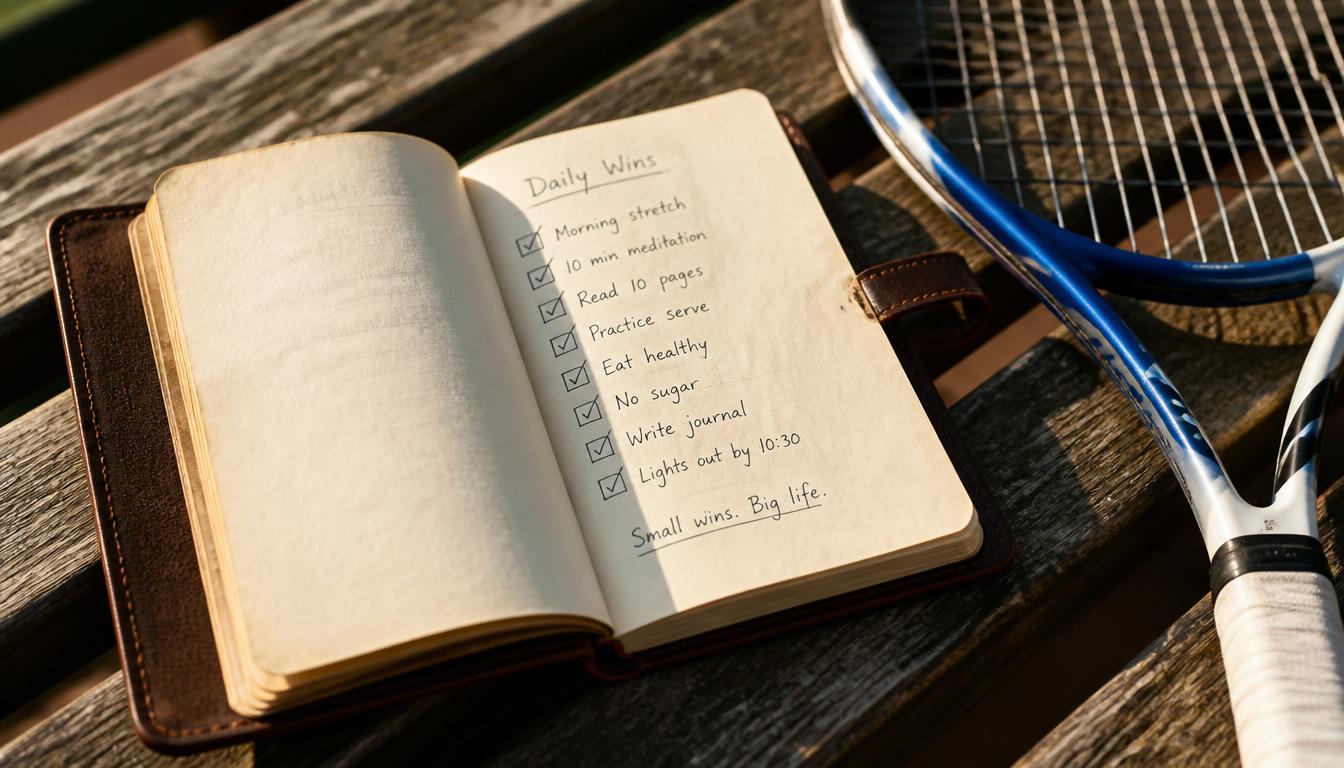 Daily Wins
Morning stretch
10 min meditation
Read 10 pages
Practice serve
Eat healthy
No sugar
Write journal
Lights out by 10:30
Small wins. Big life.